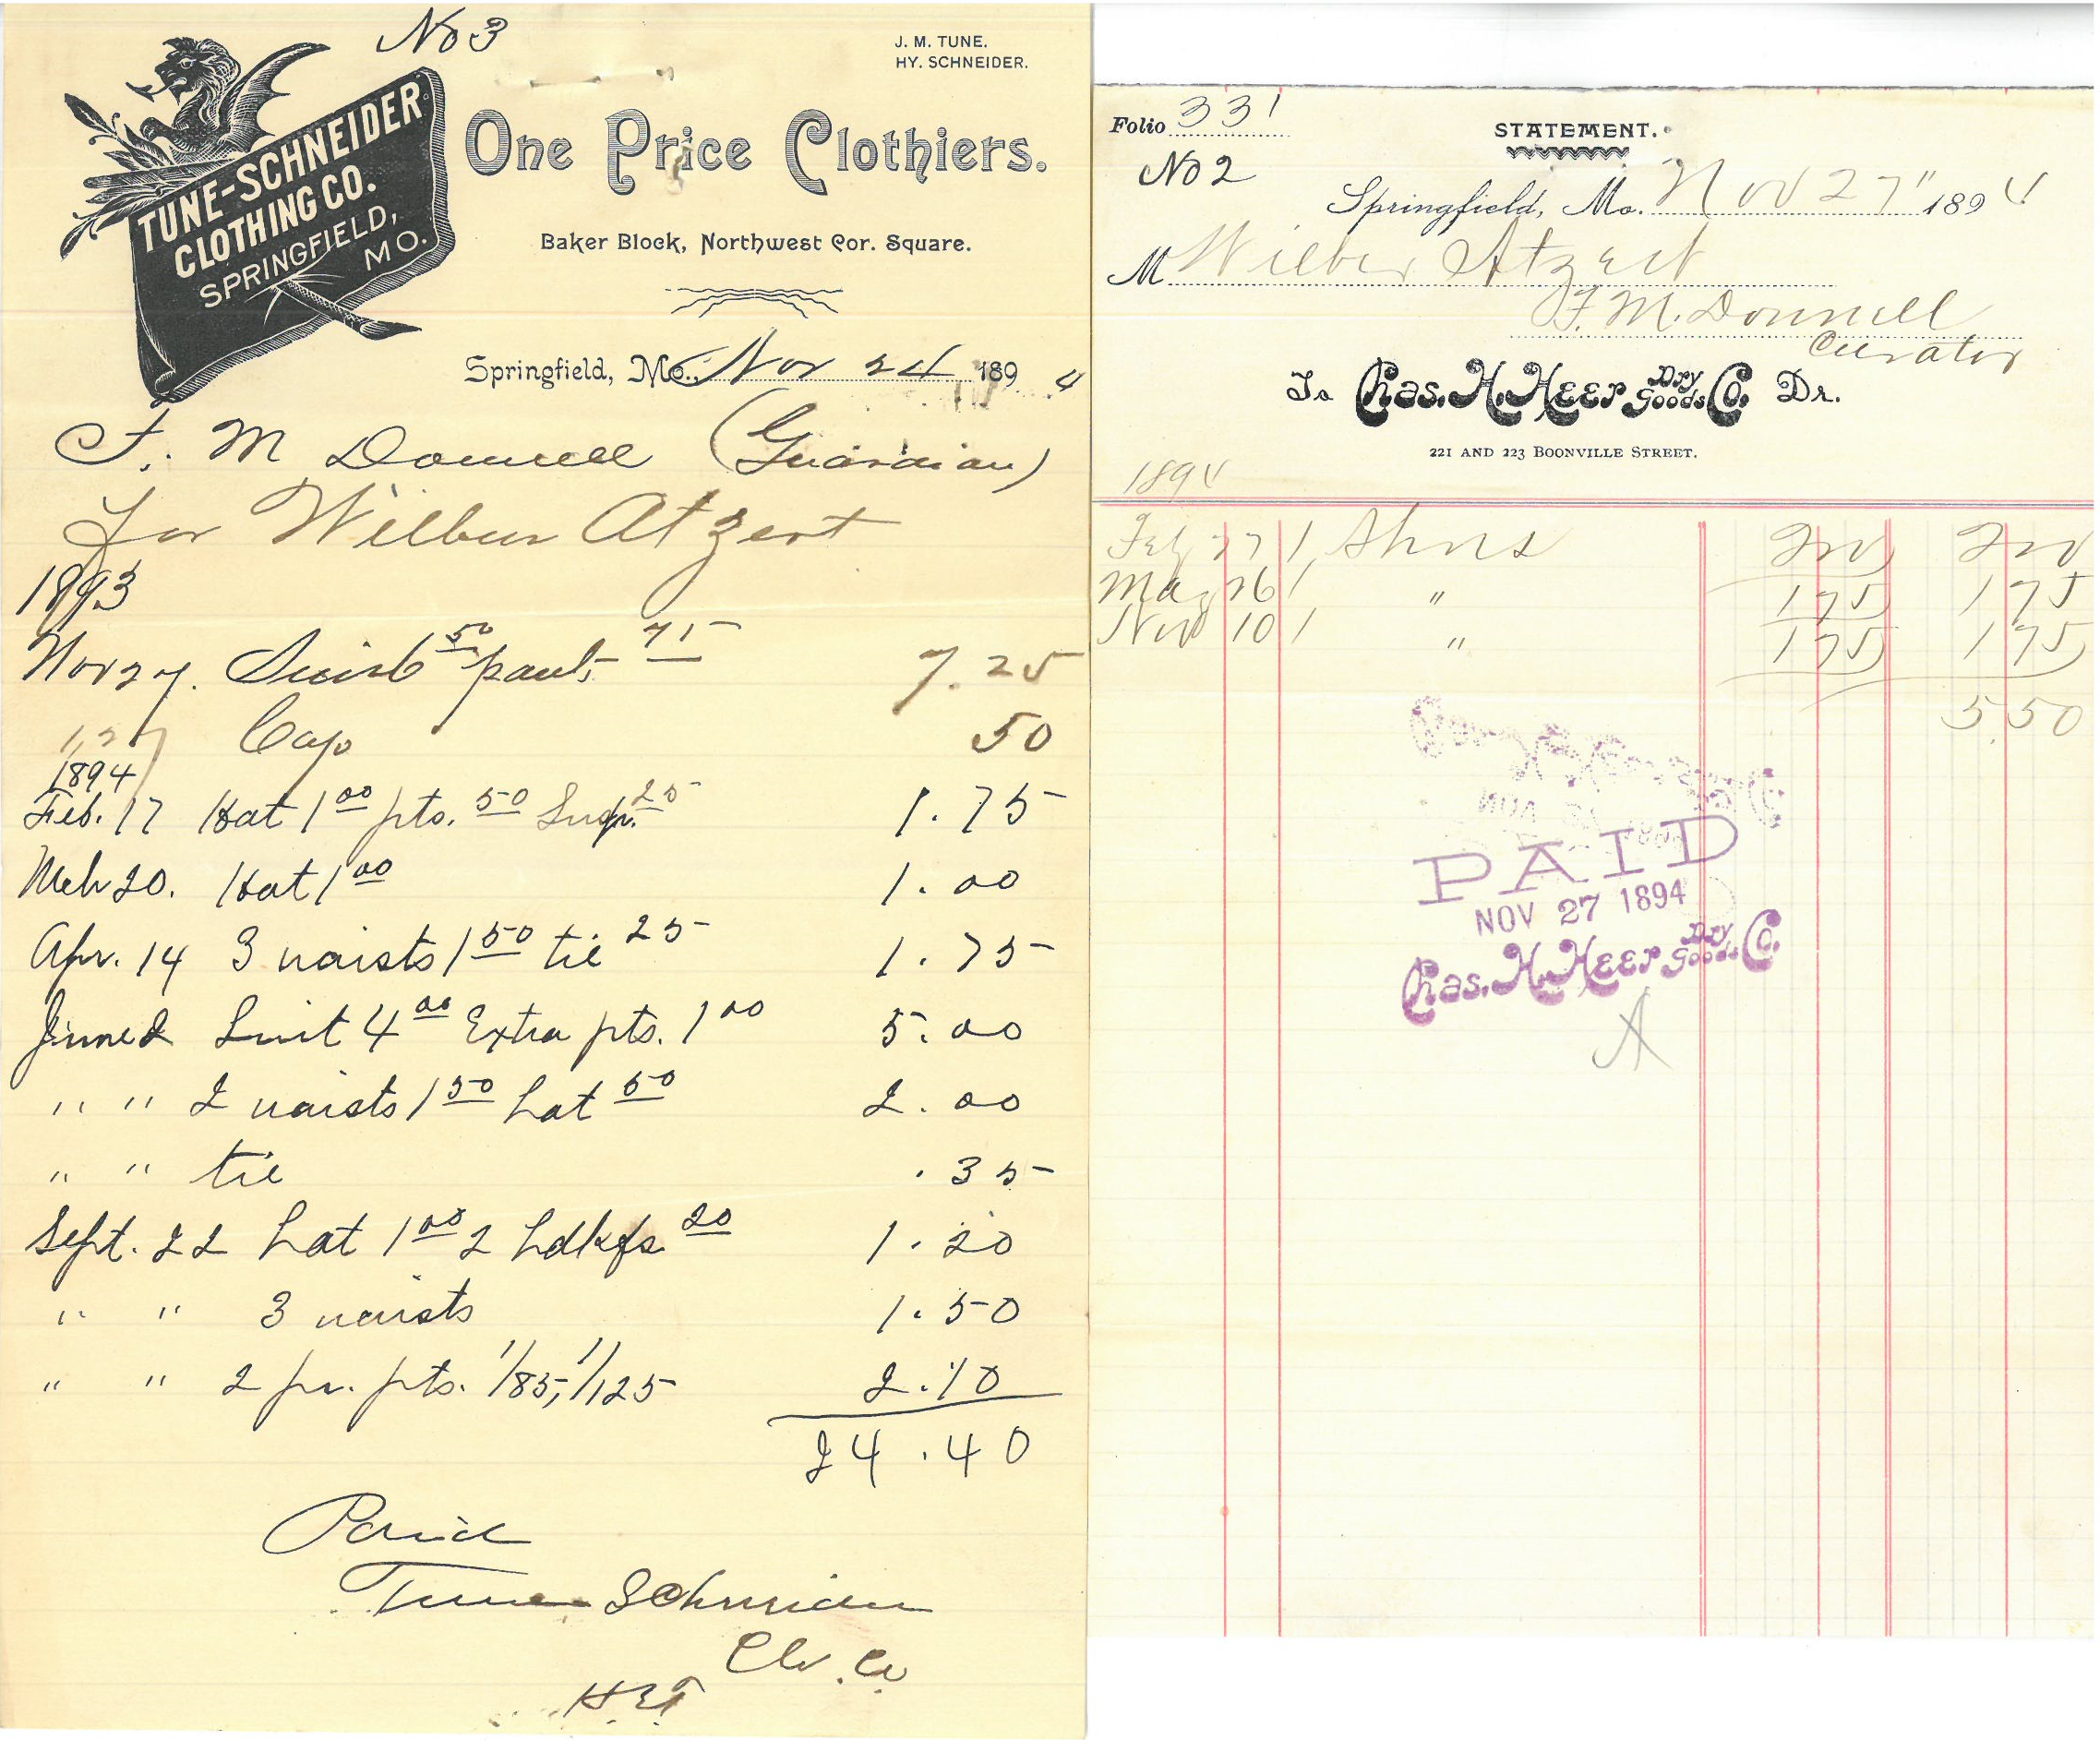 No 3
J. M. TUNE.
HY. SCHNEIDER.
TUNE-SCHNEIDER
CLOTHING CO.
SPRINGFIELD,
MO.
One Price Clothiers.
Baker Block, Northwest Cor. Square.
Springfield, Mo., Nov 24 1894
F. M Donnell (Guardian)
for Wilbur Atzert
1893
Nov 27. Suit 6 50 pants 75 7.25
" 27 Cap 50
1894
Feb. 17 Hat 1 00 pts. 50 Susp. 25 1.75
Mch 20. Hat 1 00 1.00
Apr. 14 3 waists 1 50 tie 25 1.75
June 2 Suit 4 00 Extra pts. 1 00 5.00
" " 2 waists 1 50 hat 50 2.00
" " tie .35
Sept. 22 hat 1 00 2 hdkfs 20 1.20
" " 3 waists 1.50
" " 2 pr. pts. 1/85, 1/125 2.10
24.40
Paid
Tune Schneider
Clo. Co
Folio 331
STATEMENT.
No 2
Springfield, Mo. Nov 27" 1894
M Wilber Atzert
F. M. Donnell
Curator
To Chas. H. Heer Dry Goods Co. Dr.
221 AND 223 BOONVILLE STREET.
1894
Feb 27 1 Shoes 200 200
Ma 26 1 " 175 175
Nov 10 1 " 175 175
5.50
PAID
NOV 27 1894
Chas. H. Heer Dry Goods Co.
A